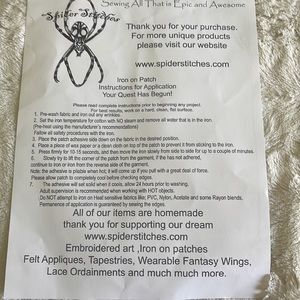 Sewing All That is Epic and Awesome
Spider Stitches
Thank you for your purchase.
For more unique products
please visit our website
www.spiderstitches.com
Iron on Patch
Instructions for Application
Your Quest Has Begun!
Please read complete instructions prior to beginning any project.
For best results, work on a hard, clean, flat surface.
1. Pre-wash fabric and iron out any wrinkles.
2. Set the iron temperature for cotton with NO steam and remove all water that is in the iron.
(Pre-heat using the manufacturer's recommendations)
Follow all safety procedures with the iron.
3. Place the patch adhesive side down on the fabric in the desired position.
4. Place a piece of wax paper or a clean cloth on top of the patch to prevent it from sticking to the iron.
5. Press firmly for 10-15 seconds, and then move the iron slowly from side to side for up to a couple of minutes.
6. Slowly try to lift the corner of the patch from the garment, if it has not adhered,
continue to iron or iron from the reverse side of the garment.
Note: the adhesive is pliable when hot; it will come up if you pull with a great deal of force.
Please allow patch to completely cool before checking edges.
7. The adhesive will set solid when it cools, allow 24 hours prior to washing.
Adult supervision is recommended when working with HOT objects.
Do NOT attempt to iron on Heat sensitive fabrics like; PVC, Nylon, Acetate and some Rayon blends.
Permanence of application is guaranteed by sewing the edges.
All of our items are homemade
thank you for supporting our dream
www.spiderstitches.com
Embroidered art ,Iron on patches
Felt Appliques, Tapestries, Wearable Fantasy Wings,
Lace Ordainments and much much more.